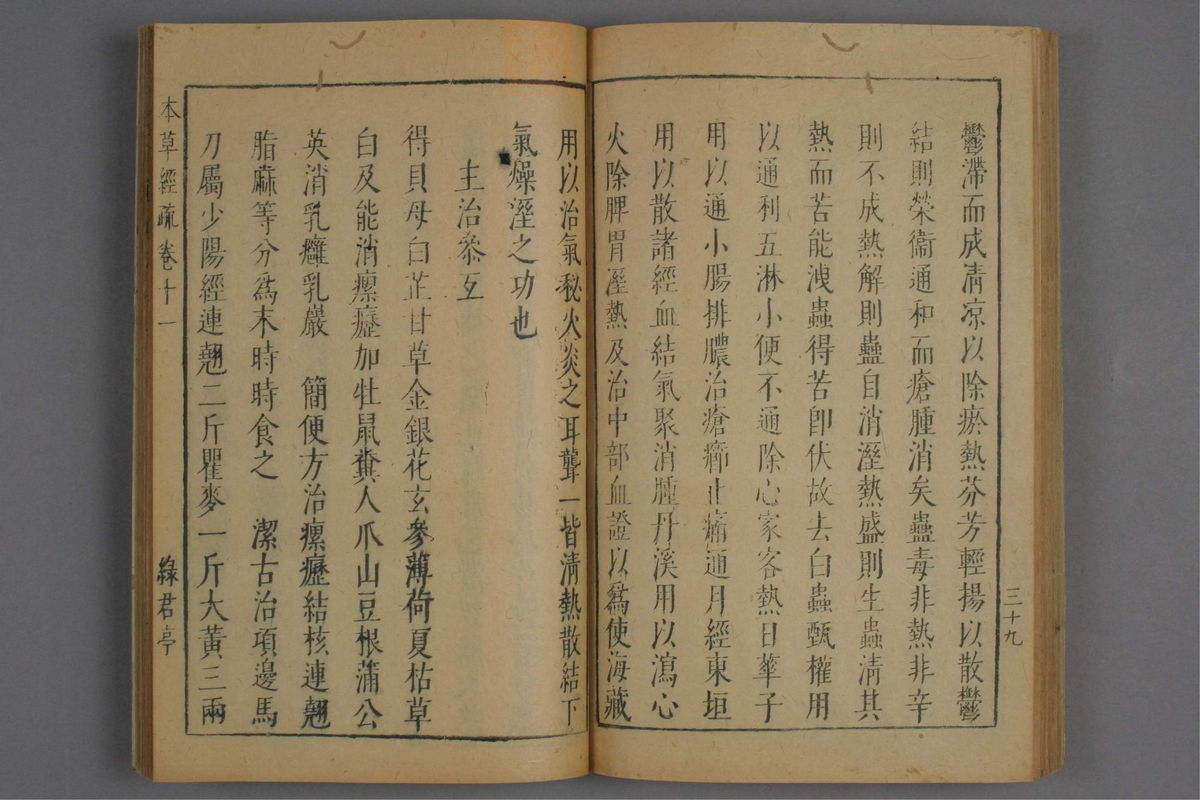 鬱滯而成清凉以除瘀熱芬芳輕揚以散鬱
結則榮衞通和而瘡腫消矣蠱毒非熱非辛
則不成熱解則蠱自消溼熱盛則生蟲清其
熱而苦能洩蟲得苦卽伏故去白蟲甄權用
以通利五淋小便不通除心家客熱日華子
用以通小腸排膿治瘡癤止痛通月經東垣
用以散諸經血結氣聚消腫丹溪用以瀉心
火除脾胃溼熱及治中部血證以爲使海藏
三十九
用以治氣秘火炎之耳聾一皆清熱散結下
氣燥溼之功也
主治叅互
得貝母白芷甘草金銀花玄參薄荷夏枯草
白及能消瘰癧加牡鼠糞人爪山豆根蒲公
英消乳癰乳巖　簡便方治瘰癧結核連翹
脂麻等分爲末時時食之　潔古治項邊馬
刀屬少陽經連翹二斤瞿麥一斤大黃三兩
本草經疏卷十一
綠君亭